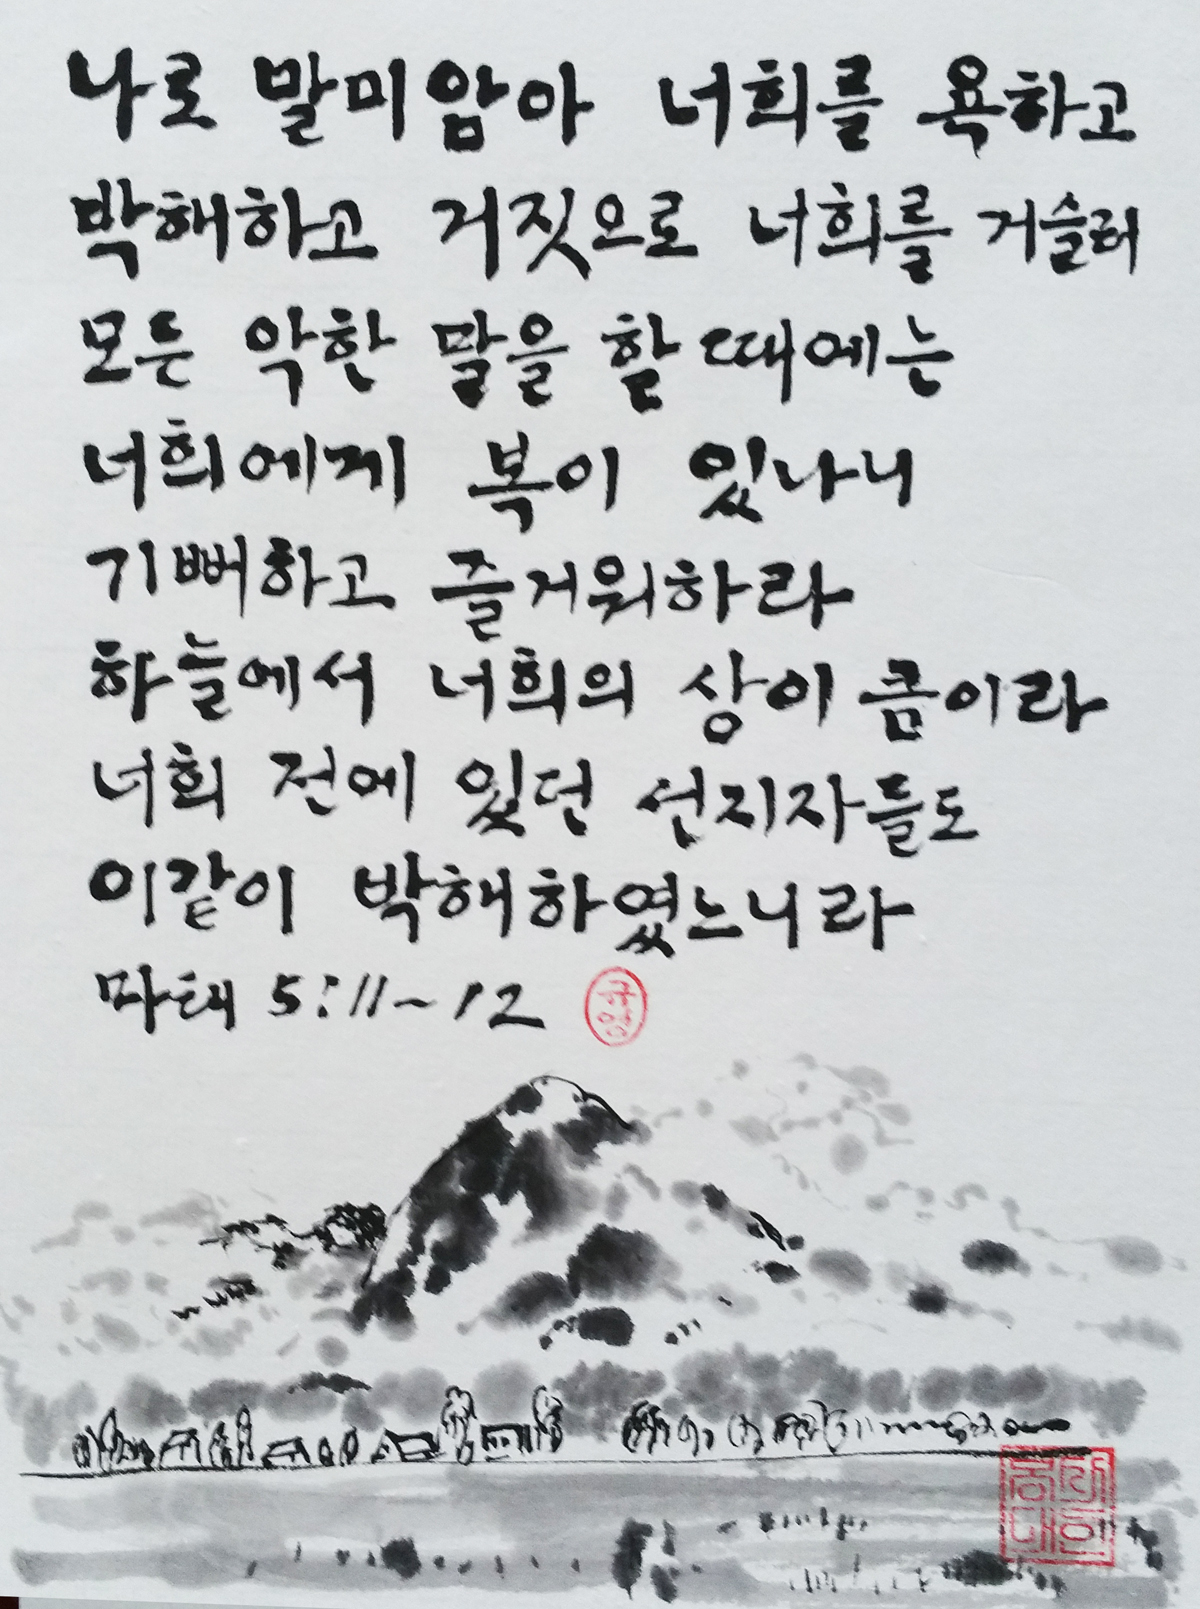 나로 말미암아 너희를 욕하고
박해하고 거짓으로 너희를 거슬러
모든 악한 말을 할 때에는
너희에게 복이 있나니
기뻐하고 즐거워하라
하늘에서 너희의 상이 큼이라
너희 전에 있던 선지자들도
이같이 박해하였느니라
마태 5:11~12
규영